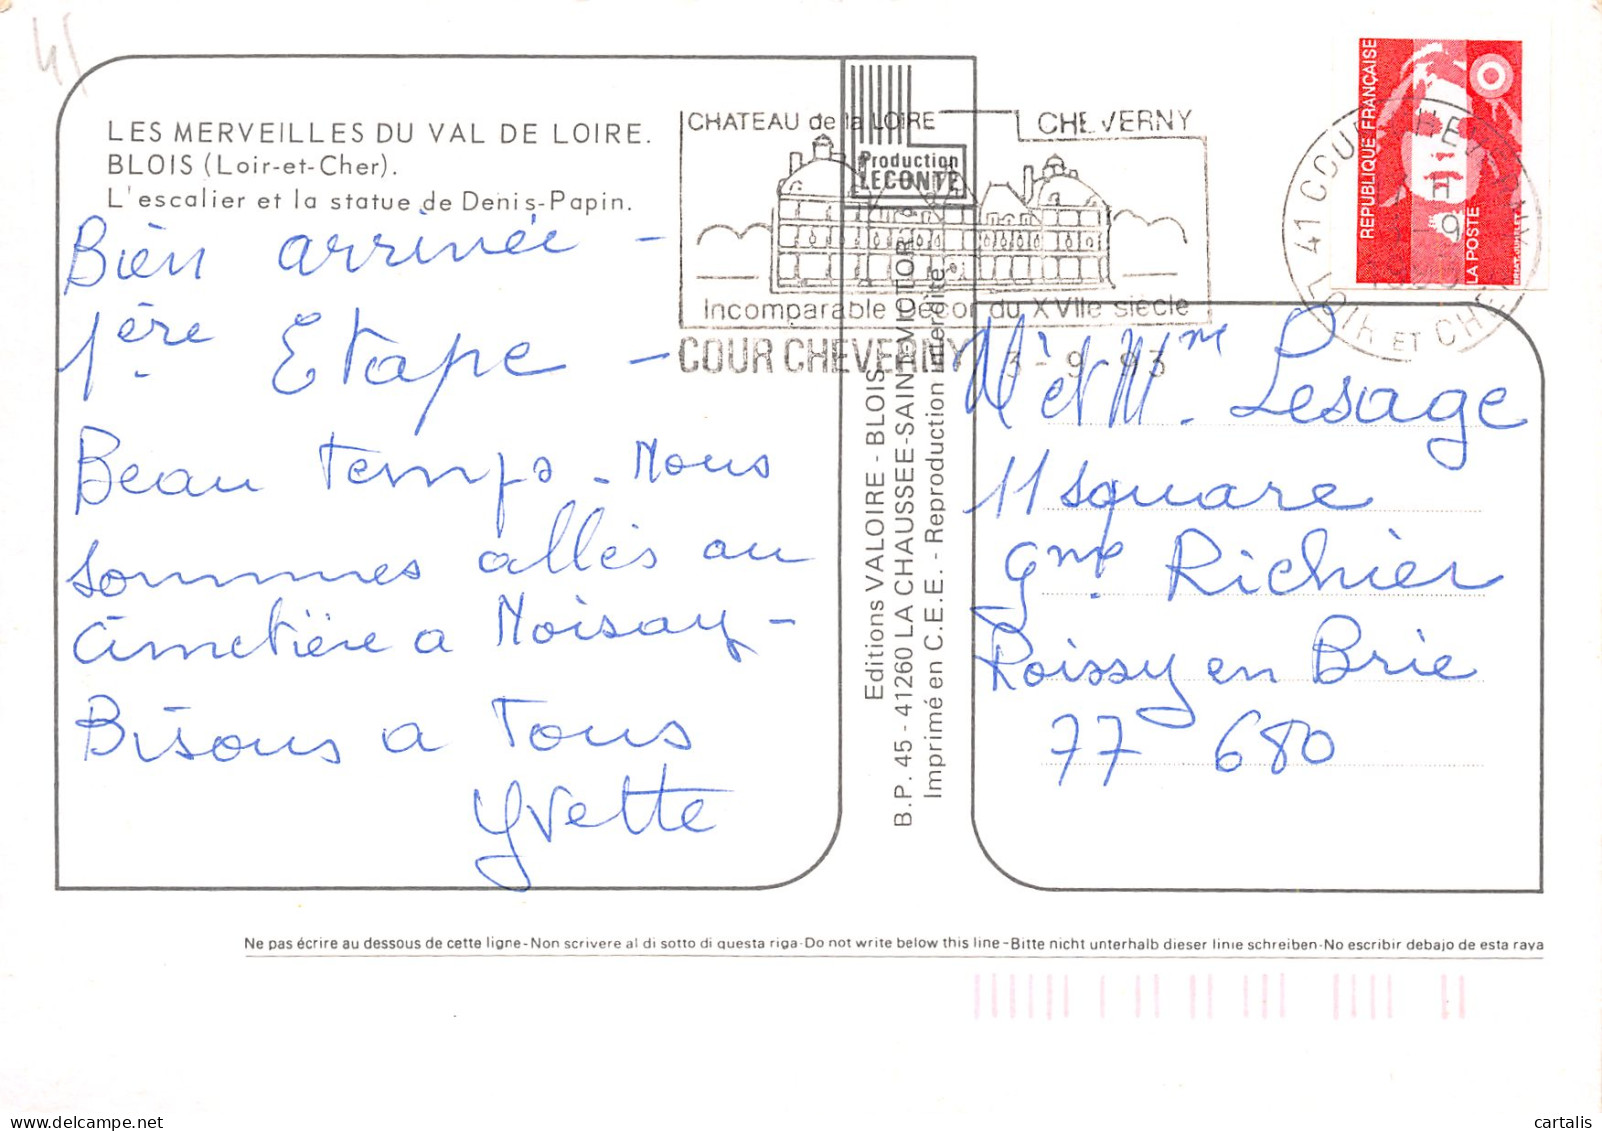 45
LES MERVEILLES DU VAL DE LOIRE.
BLOIS (Loir-et-Cher).
L'escalier et la statue de Denis-Papin.
Bien arrivée -
1ère Etape -
Beau temps - Nous
sommes allés au
cimetière a Moisay -
Bisous a Tous
Yvette
Production
LECONTE
Editions VALOIRE - BLOIS
B.P. 45 - 41260 LA CHAUSSEE-SAINT-VICTOR
Imprimé en C.E.E. - Reproduction interdite
CHATEAU de la LOIRE
CHEVERNY
Incomparable Décor du XVIIe siècle
COUR CHEVERNY
3-9-93
41 COUR CHEVERNY
LOIR ET CHER
REPUBLIQUE FRANÇAISE
LA POSTE
Mr et Mme Lesage
11 square
Gme Richier
Roissy en Brie
77 680
Ne pas écrire au dessous de cette ligne-Non scrivere al di sotto di questa riga-Do not write below this line-Bitte nicht unterhalb dieser linie schreiben-No escribir debajo de esta raya
delcampe.net
cartalis